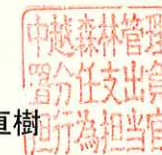 中越森林管理
署分任支出負
担行為担当官
直樹